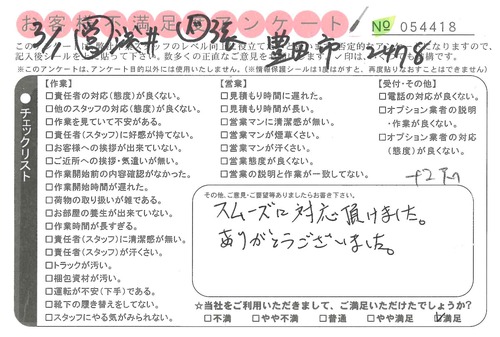 お客様不満足度アンケート
№ 054418
3/1 浅井 豊田市
記入後シールをして貼って下さい。数多くの正直なご意見を
※このアンケートは、アンケート目的以外には使用いたしません。(※情報保護シールは1度はがすと、再度貼りなおすことはできません)
チェックリスト
【作業】
□責任者の対応(態度)が良くない。
□他のスタッフの対応(態度)が良くない。
□作業を見ていて不安がある。
□責任者(スタッフ)に好感が持てない。
□お客様への挨拶が出来ていない。
□ご近所への挨拶・気遣いが無い。
□作業開始前の内容確認がなかった。
□作業開始時間が遅れた。
□荷物の取り扱いが雑である。
□お部屋の養生が出来ていない。
□作業時間が長すぎる。
□責任者(スタッフ)に清潔感が無い。
□責任者(スタッフ)が汗くさい。
□トラックが汚い。
□梱包資材が汚い。
□運転が不安(下手)である。
□靴下の履き替えをしてない。
□スタッフにやる気がみられない。
【営業】
□見積もり時間に遅れた。
□見積もり時間が長い。
□営業マンに清潔感が無い。
□営業マンが煙草くさい。
□営業マンが汗くさい。
□営業態度が良くない。
□営業の説明と作業が一致してない。
【受付・その他】
□電話の対応が良くない。
□オプション業者の説明
・作業が良くない。
□オプション業者の対応
(態度)が良くない。
その他、ご意見・ご要望等ありましたらお書き下さい。
スムーズに対応頂けました。
ありがとうございました。
☆当社をご利用いただきまして、ご満足いただけたでしょうか?
□不満 □やや不満 □普通 □やや満足 ☑満足